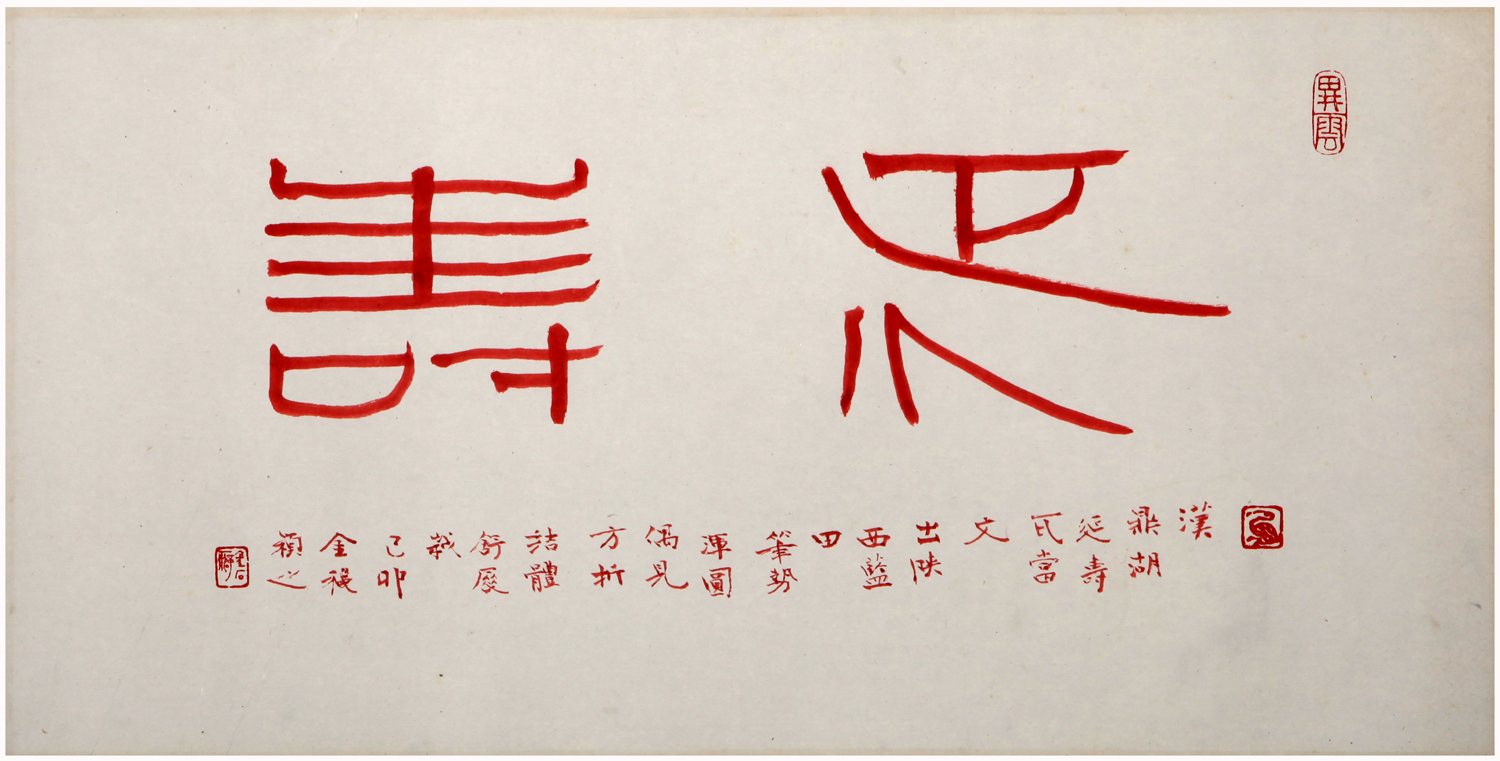 延壽
漢
鼎湖
延壽
瓦當
文
出陝
西藍
田
筆勢
渾圓
偶見
方折
結體
舒展
哉
己卯
金穫
穎之
異雲